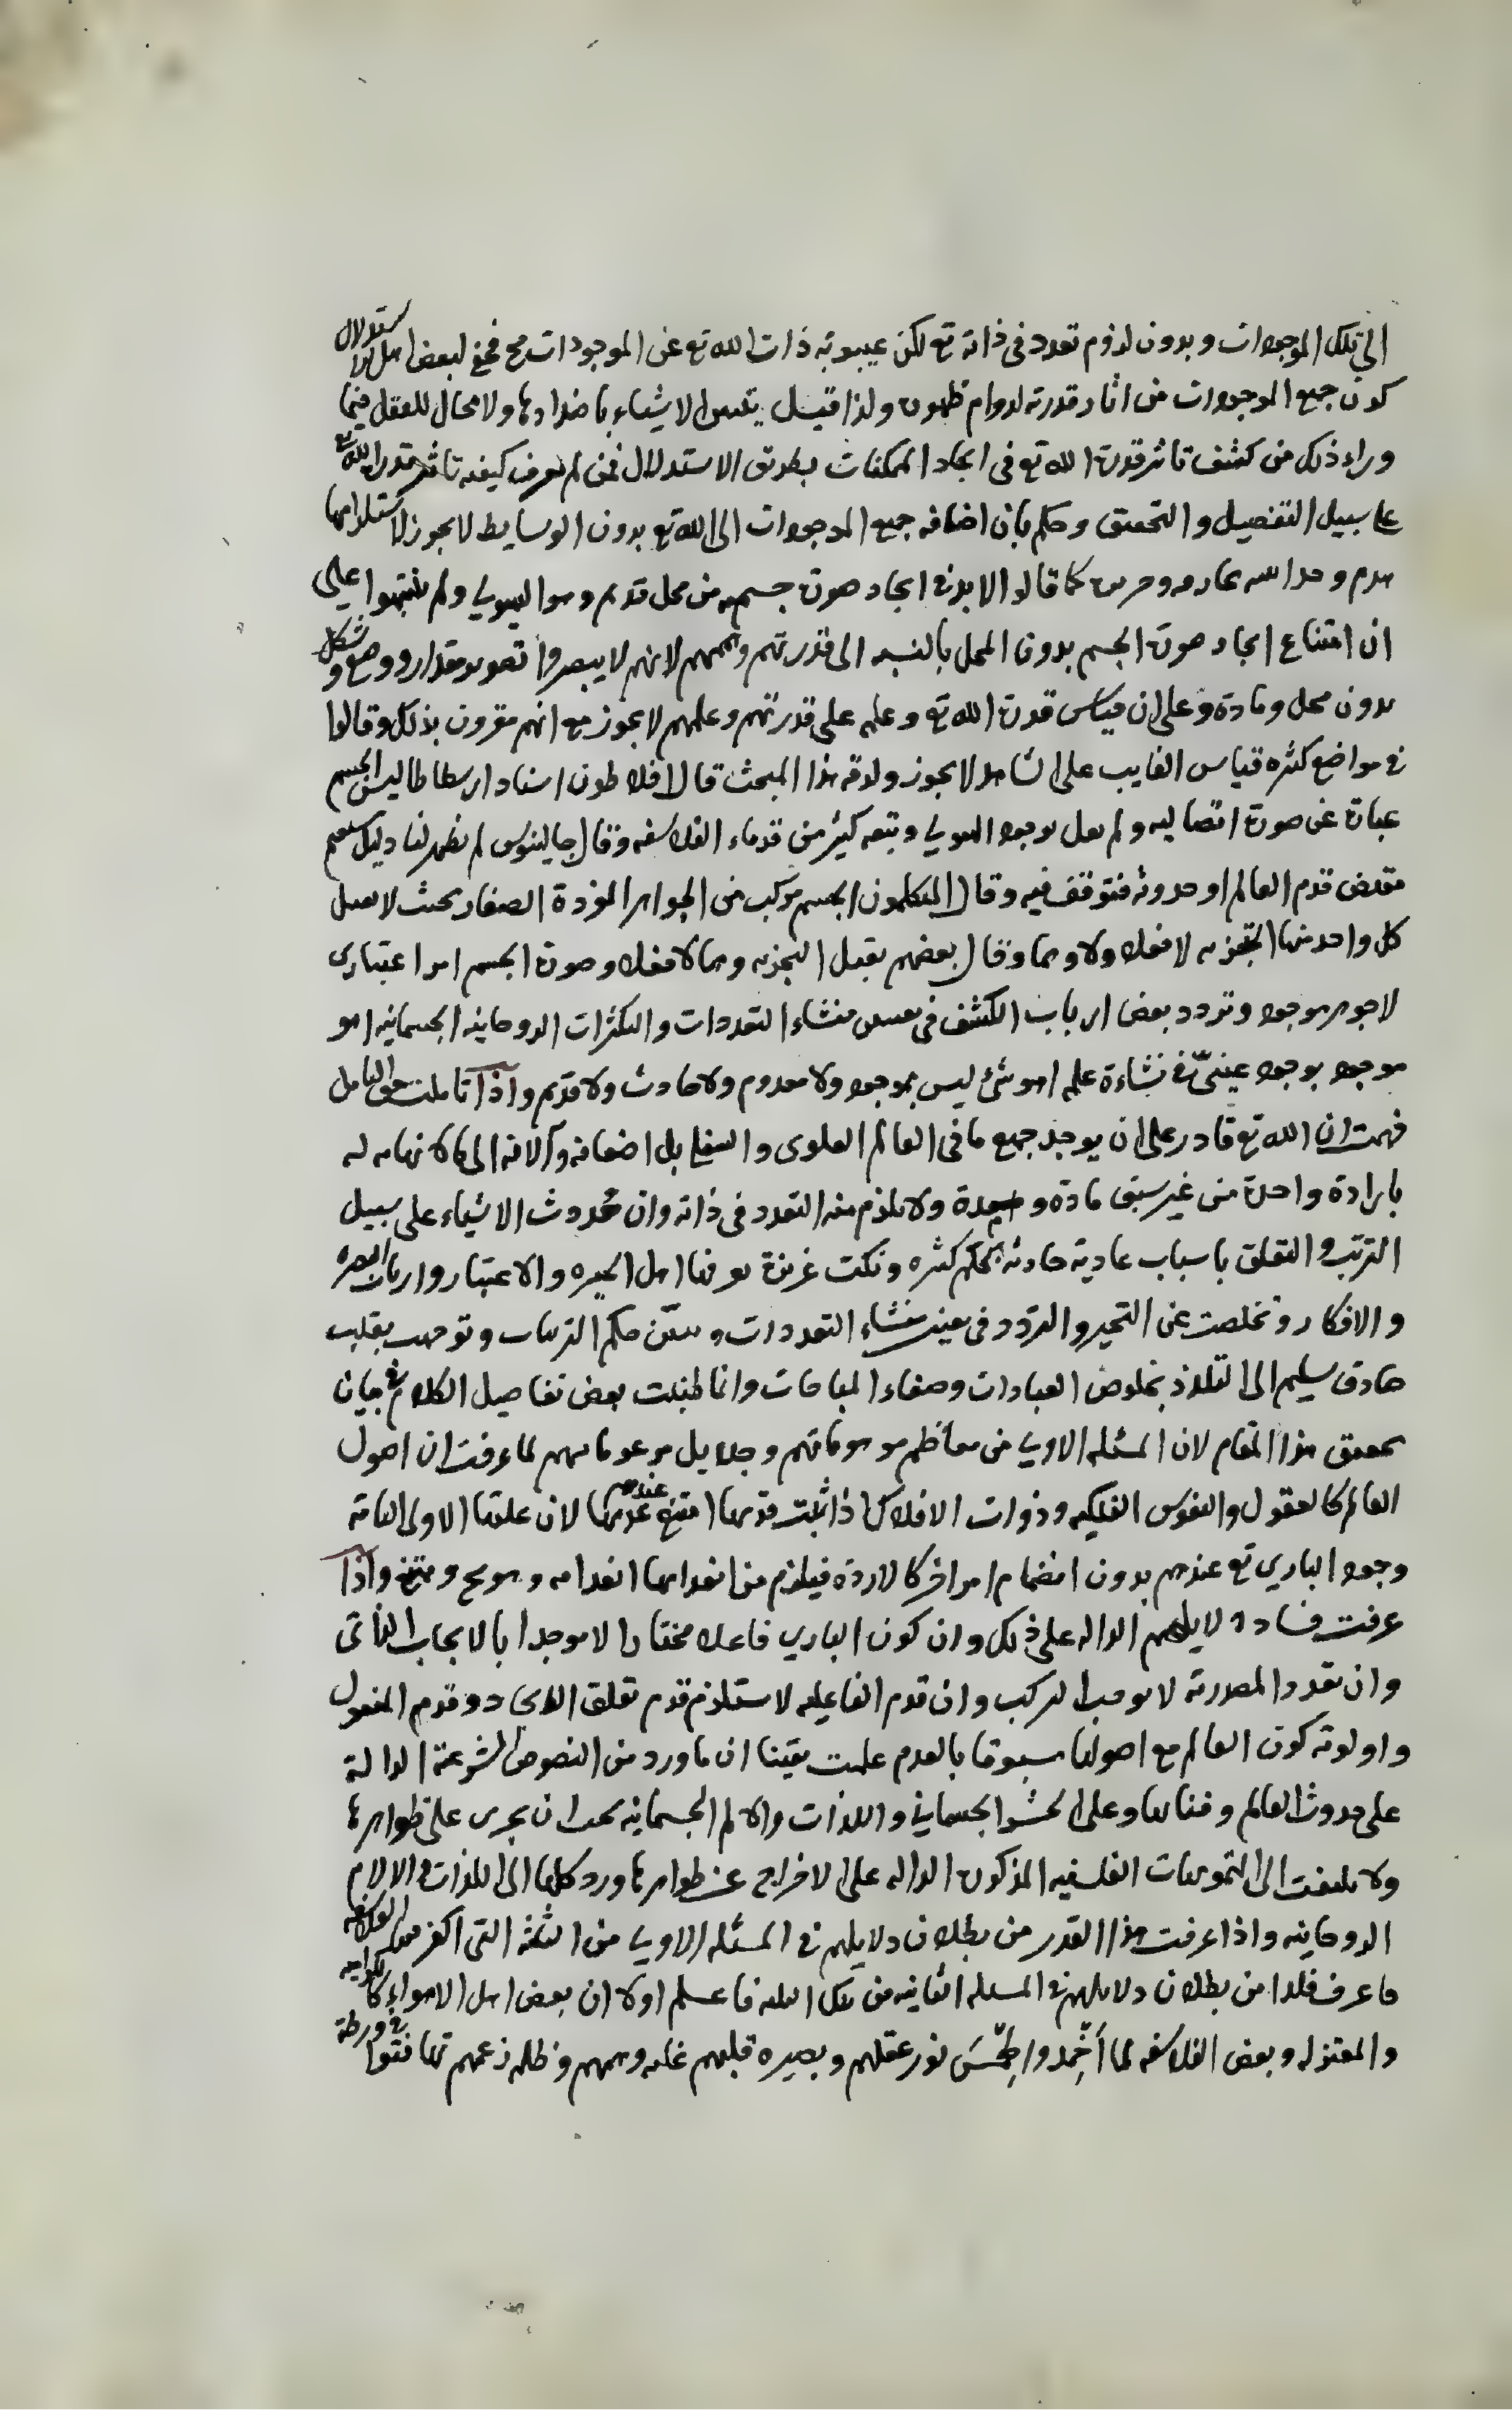 الى تلك الموجودات وبدون لزوم تعدد فى ذاته تع لكن غيبوبة ذات الله تع عن الموجودات مح فخفى لبعض اهل الاستدلال
كون جميع الموجودات من اثار قدرته لدوام ظهوره ولذا قيل يتبين الاشياء باضدادها ولا مجال للعقل فيما
وراء ذلك من كشف تأثير قدرة الله تع فى ايجاد الممكنات بطريق الاستدلال فمن لم يعرف كيفية تأثير قدرة الله تع
على سبيل التفصيل والتحقيق وحكم بان اضافة جميع الموجودات الى الله تع بدون الوسايط لا يجوز لاستلزامها
كما قالوا لابد فى ايجاد صورة جسمية من محل قديم وهو الهيولى ولم ينتبهوا على
ان امتناع ايجاد صورة الجسم بدون المحل بالنسبة الى قدرتهم وفهمهم لانهم لا يبصروا تصوير مقدار ووضع وشكل
بدون محل ومادة وعلى ان قياس قدرة الله تع وعلمه على قدرتهم وعلمهم لا يجوز مع انهم مقرون بذلك وقالوا
فى مواضع كثيرة قياس الغايب على الشاهد لا يجوز ولدقة هذا المبحث قال افلاطون استاد ارسطاطاليس الجسم
عبارة عن صورة اتصالية ولم يقل بوجود الهيولى وتبعه كثير من قدماء الفلاسفة وقال جالينوس لم يظهر لنا دليل
قدم العالم او حدوثه فتوقف فيه وقال المتكلمون الجسم مركب من الجواهر المفردة الصغار بحيث لا يقبل
كل واحد منها التجزية لا فعلا ولا وهما وقال بعضهم يقبل التجزية وهما لا فعلا وصورة الجسم امر اعتبارى
لا جوهر موجود وتردد بعض ارباب الكشف فى تعيين منشاء التعددات والتكثرات الروحانية الجسمانية اهو
موجود بوجود عينى فى نشاءة علمه اهو شئ ليس بموجود ولا معدوم ولا حادث ولا قديم واذا تاملت حق التامل
فهمت ان الله تع قادر على ان يوجد جميع ما فى العالم العلوى والسفلى بل اضعافه وآلافه الى ما لا نهاية له
بارادة واحدة من غير سبق مادة و ولا يلزم منه التعدد فى ذاته وان حدوث الاشياء على سبيل
الترتب والتعلق باسباب عادية حادثة لحكم كثيرة ونكت غزيرة يعرفها اهل الخبرة والاعتبار وارباب البصيرة
والافكار وتخلصت عن التحير والتردد فى تعيين منشاء التعددات وتبين حكم الترتبات وتوجهت بقلب
صادق سليم الى التلذذ بخلوص العبادات وصفاء المناجات وانما اطنبت بعض تفاصيل الكلام فى بيان
تحقيق هذا المقام لان المسئلة الاولى من معاظم موهوماتهم وجلايل مزعوماتهم لما عرفت ان اصول
العالم كالعقول والنفوس الفلكية وذوات الافلاك اذا ثبت قدمها امتنع عدمها عندهم لان علتها الاولى التامة
وجود البارى تع عندهم بدون انضمام امر اخر كالارادة فيلزم من انعدامها انعدامه وهو مح وممتنع واذا
عرفت فساد دلايلهم الدالة على ذلك وان كون البارى فاعلا مختارا لا موجدا بالايجاب الذاتى
وان تعدد المصدرية لا يوجب التركب وان قدم الفاعلية لا يستلزم قدم تعلق الايجاد وقدم المفعول
واولوية كون العالم مع اصولها مسبوقا بالعدم علمت يقينا ان ما ورد من النصوص الشرعية الدالة
على حدوث العالم وفنائها وعلى الحشر الجسمانى واللذات والالم الجسمانية يجب ان يجرى على ظواهرها
ولا يلتفت الى التمويهات الفلسفية المذكورة الدالة على الاخراج عن ظواهرها ورد كلها الى اللذات والالام
الروحانية واذا عرفت هذا القدر من بطلان دلايلهم فى المسئلة الاولى من الثلثة التى اكفر بها الفلاسفة
فاعرف قدرا من بطلان دلايلهم فى المسئلة الثانية من تلك الثلثة فاعلم اولا ان بعض اهل الاهواء كالكرامية
والمعتزلة وبعض الفلاسفة لما أخمد واطمس نور عقلهم وبصيرة قلبهم غلبة وهمهم وظلمة زعمهم تهافتوا فى ورطة